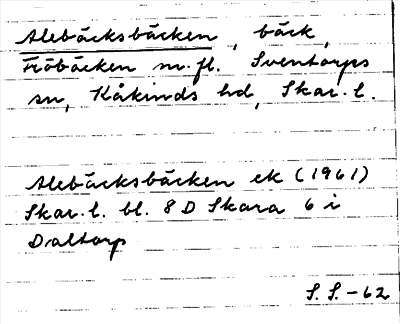 Alebäcksbäcken, bäck,
Fröbäcken m.fl. Sventorps
sn, Kåkinds hd, Skar. l.
Alebäcksbäcken ek (1961)
Skar. l. bl. 8 D Skara 6 i
Daltorp
S. S. -62